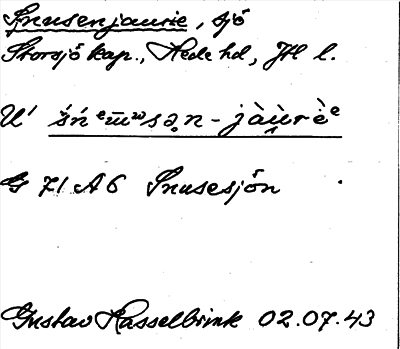 Snusenjaurie, sjö
Storsjö kap., Hede hd, JH l.
U' śńᵉm̄ʷsə̥n - jàu̯rèᵉ
G 71 A6 Snusesjön
Gustav Hasselbrink 02.07.43